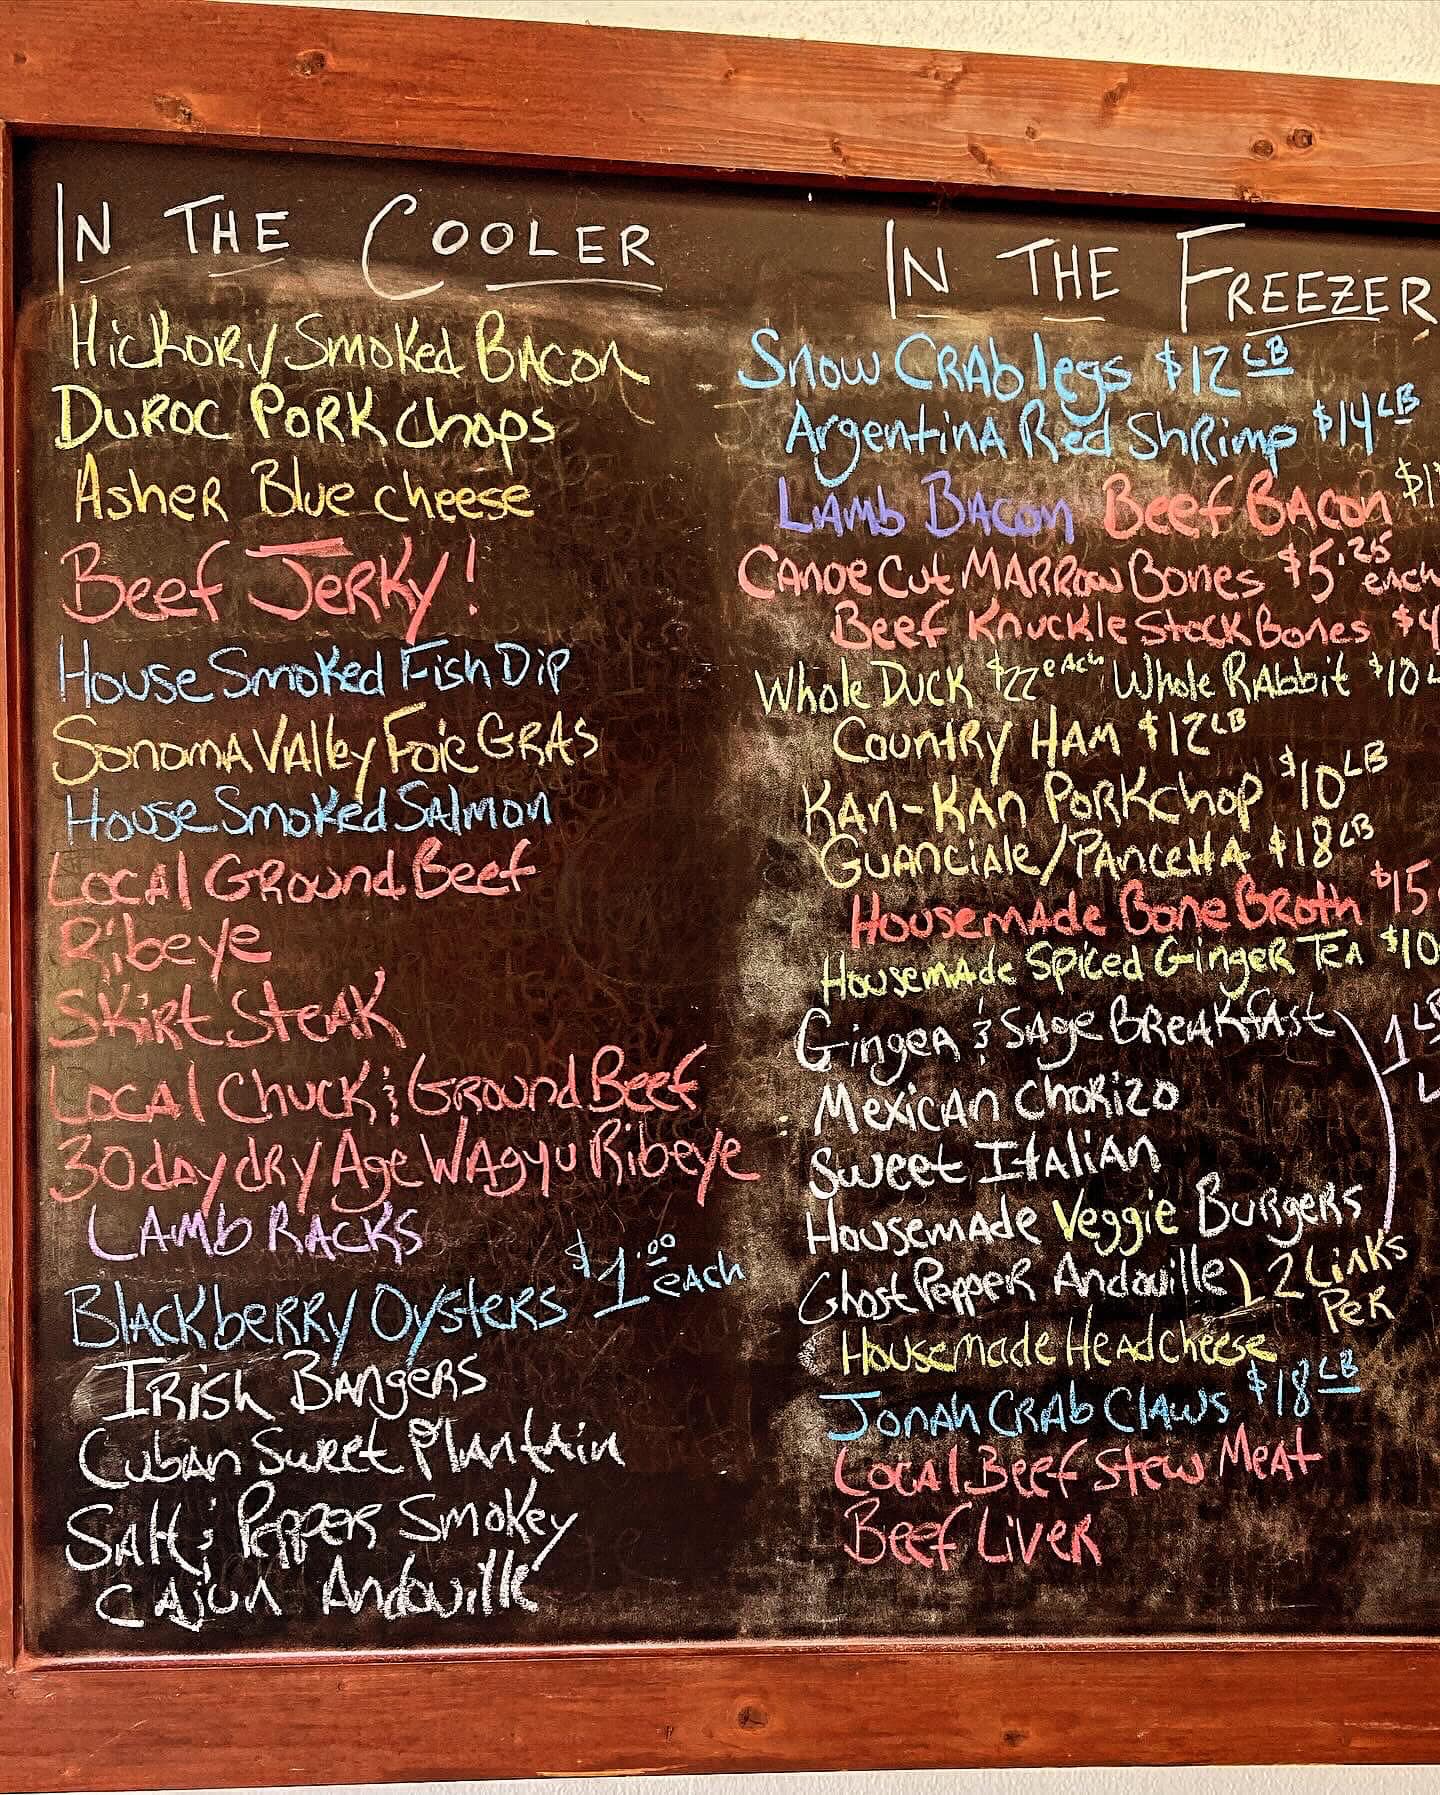 IN THE COOLER
Hickory Smoked Bacon
Duroc Pork chops
Asher Blue cheese
Beef Jerky!
House Smoked Fish Dip
Sonoma Valley Foie Gras
House Smoked Salmon
Local Ground Beef
Ribeye
Skirt Steak
Local Chuck & Ground Beef
30 day dry Age Wagyu Ribeye
Lamb Racks
Blackberry Oysters $1.00 each
Irish Bangers
Cuban Sweet Plantain
Salt & Pepper Smokey
Cajun Andouille
IN THE FREEZER
Snow Crab legs $12 LB
Argentina Red Shrimp $14 LB
Lamb Bacon Beef Bacon
Canoe Cut Marrow Bones $5.25 each
Beef Knuckle Stock Bones $4
Whole Duck $22 each Whole Rabbit $10
Country Ham $12 LB
Kan-Kan Porkchop $10 LB
Guanciale/Pancetta $18 LB
Housemade Bone Broth $15
Housemade Spiced Ginger Tea $10
Ginger & Sage Breakfast 1 LB
Mexican Chorizo
Sweet Italian
Housemade Veggie Burgers
Ghost Pepper Andouille 2 Links Per
Housemade Headcheese
Jonah Crab Claws $18 LB
Local Beef Stew Meat
Beef Liver